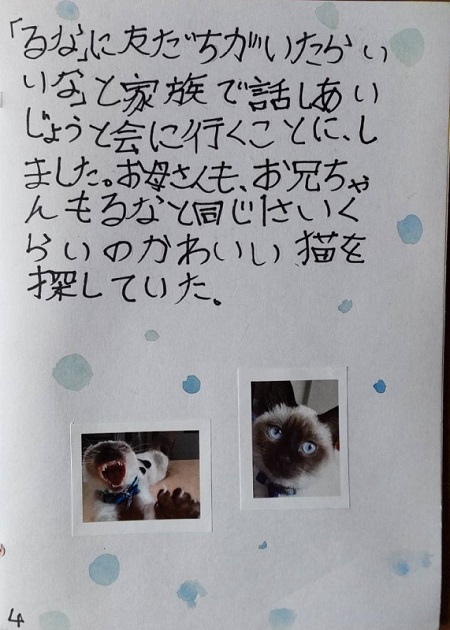 「るな」に友だちがいたらい
いな」と家族で話しあい
じょうと会に行くことに、し
ました。お母さんも、お兄ちゃ
んもるなと同じ1さいく
らいのかわいい猫を
探していた。
4